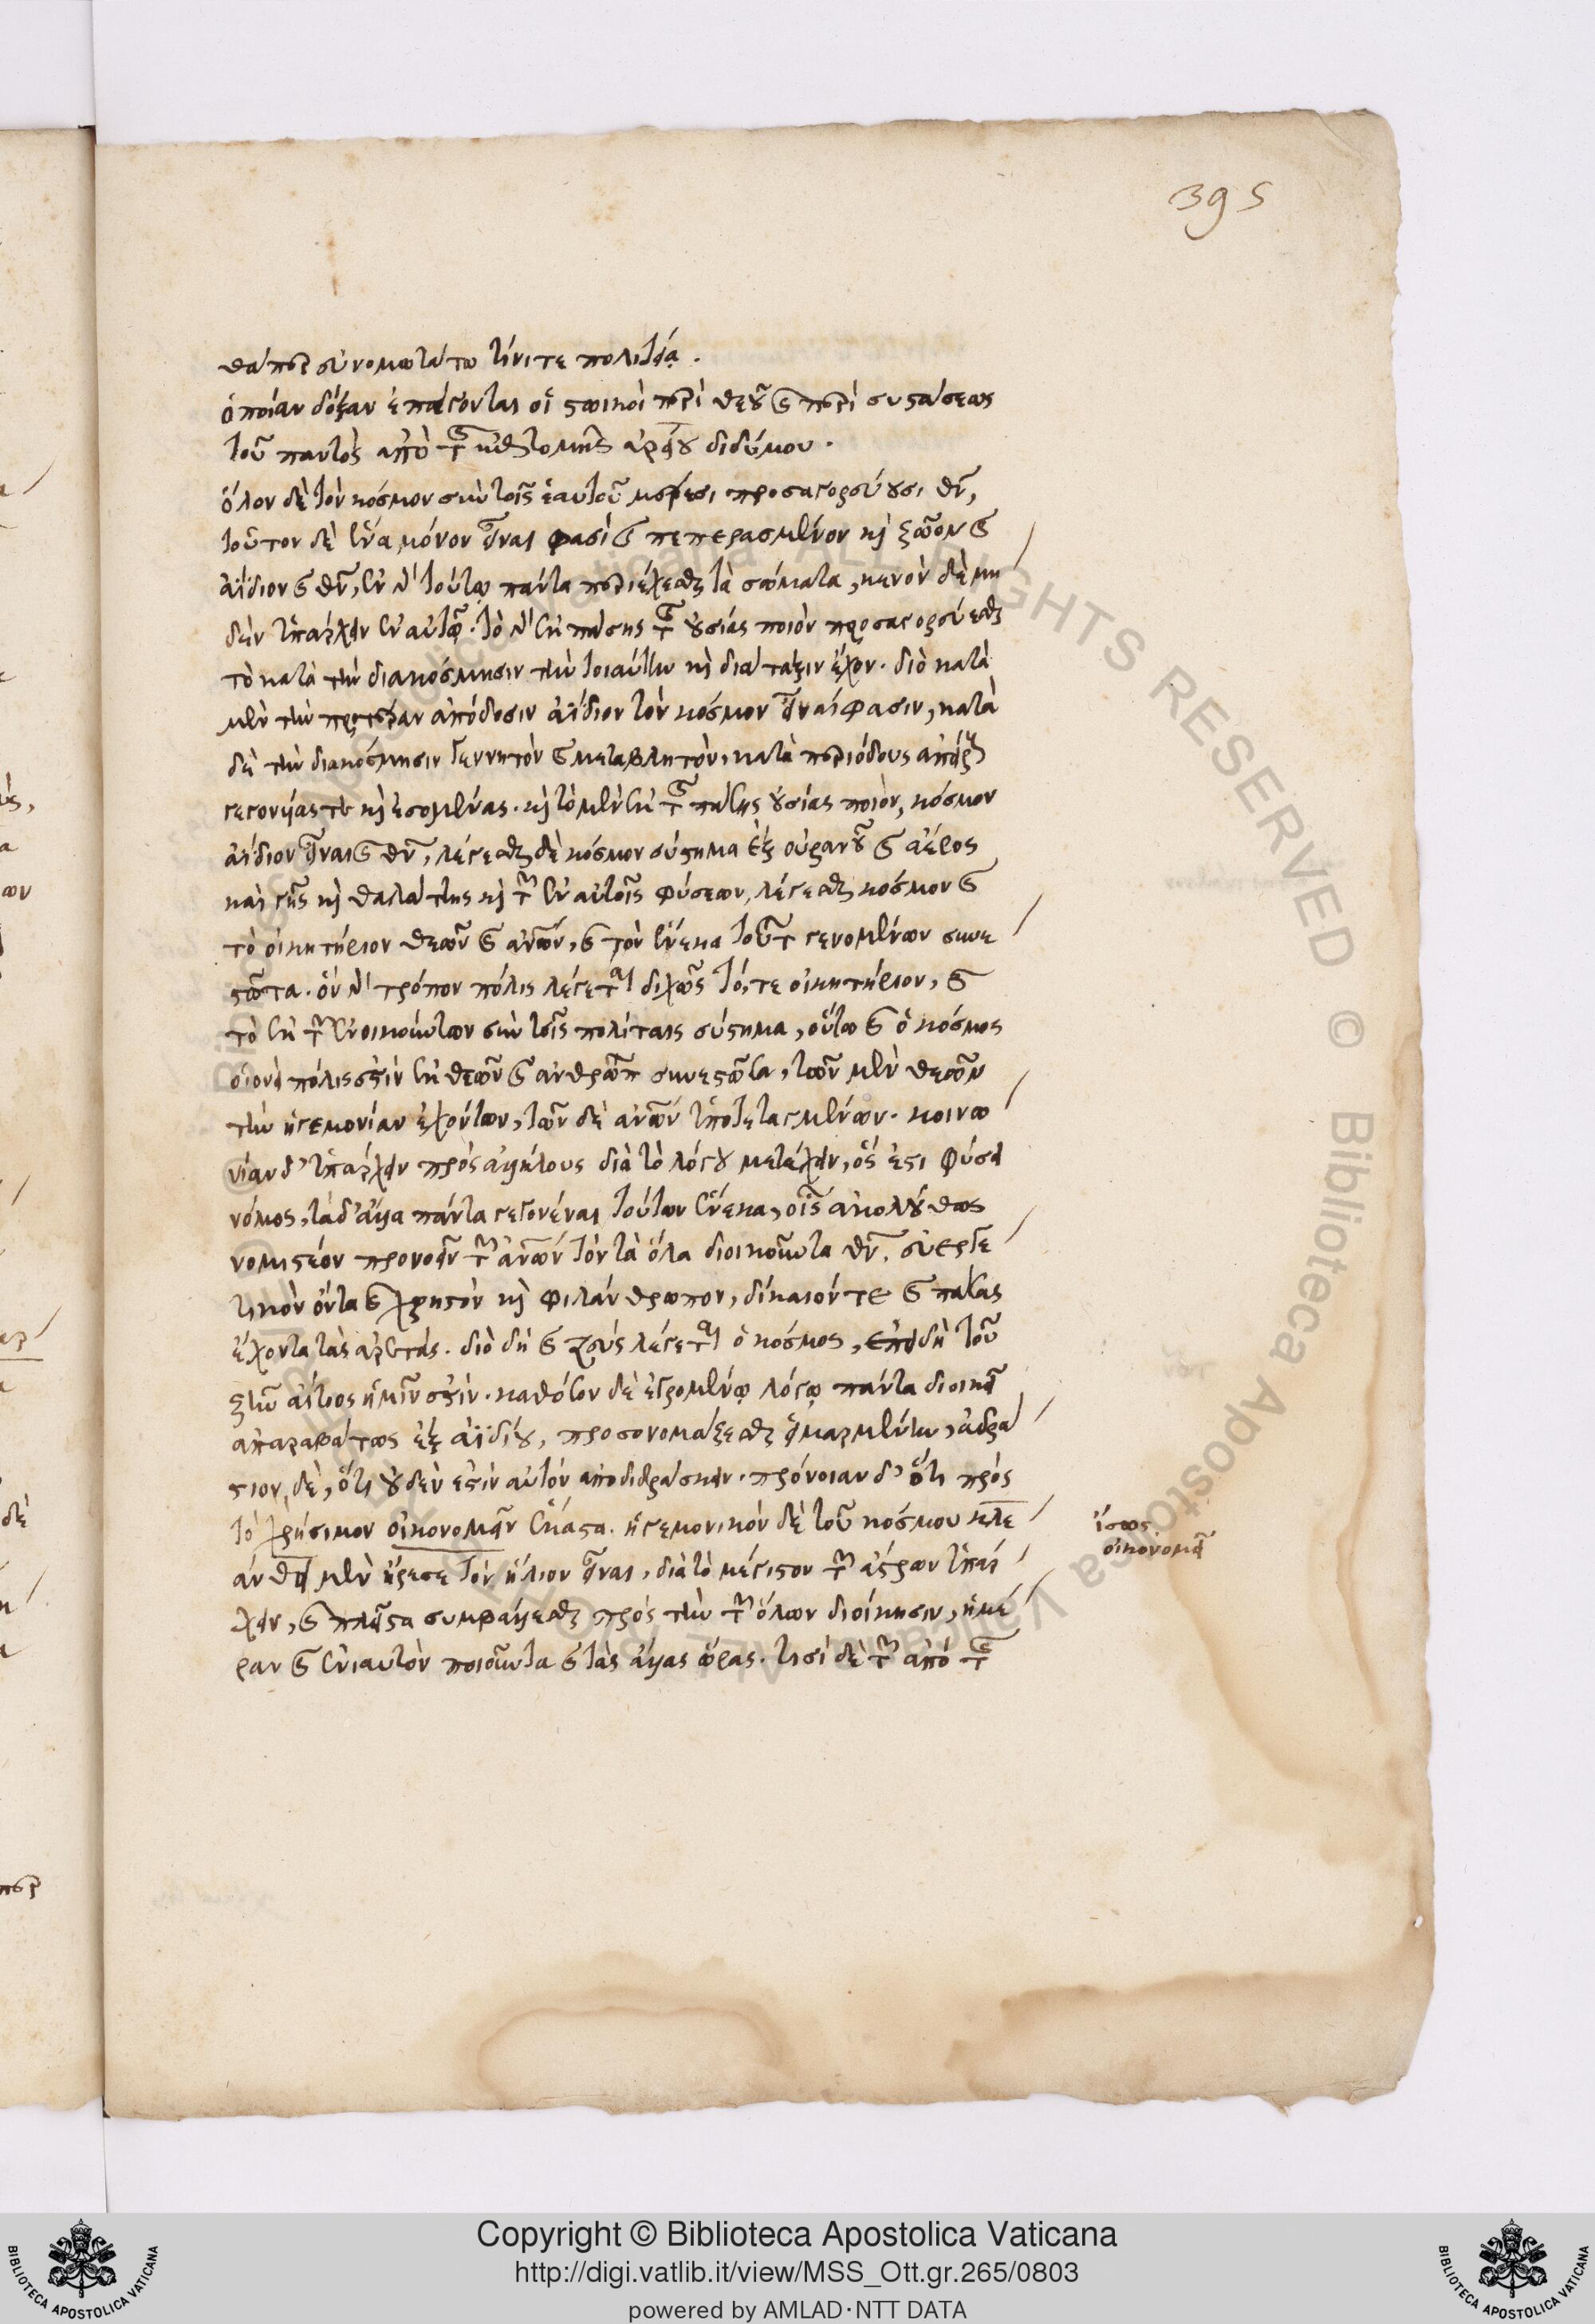 395
θάπερ εὐνομωτάτω τινὶ τε πολιτείᾳ.
ὁποίαν δόξαν ἐπάγονται οἱ στωικοὶ περὶ θεοῦ καὶ περὶ συστάσεως
τοῦ παντὸς ἀπὸ τῆς ἐπιτομῆς ἀρείου διδύμου.
ὅλον δὲ τὸν κόσμον σὺν τοῖς ἑαυτοῦ μέρεσι προσαγορεύουσι θεὸν,
τοῦτον δὲ ἕνα μόνον εἶναι φασὶ καὶ πεπερασμένον καὶ ζῶον καὶ
ἀΐδιον καὶ θεὸν, ἐν γὰρ τούτῳ πάντα περιέχεσθαι τὰ σώματα, κενὸν δὲ μη
δὲν ὑπάρχειν ἐν αὐτῷ. τὸ γὰρ ἐκ πάσης τῆς οὐσίας ποιὸν προσαγορεύεσθαι
τὸ κατὰ τὴν διακόσμησιν τὴν τοιαύτην καὶ διάταξιν ἔχον. διὸ κατὰ
μὲν τὴν προτέραν ἀπόδοσιν ἀΐδιον τὸν κόσμον εἶναί φασιν, κατὰ
δὲ τὴν διακόσμησιν γεννητὸν καὶ μεταβλητὸν, κατὰ περιόδους ἀπείρους
γεγονυίας τε καὶ ἐσομένας. καὶ τὸ μὲν ἐκ τῆς πάσης οὐσίας ποιὸν, κόσμον
ἀΐδιον εἶναι καὶ θεὸν, λέγεσθαι δὲ κόσμον σύστημα ἐξ οὐρανοῦ καὶ ἀέρος
καὶ γῆς καὶ θαλάττης καὶ τῶν ἐν αὐτοῖς φύσεων, λέγεσθαι κόσμον καὶ
τὸ οἰκητήριον θεῶν καὶ ἀνθρώπων, καὶ τὸν ἕνεκα τούτων γενομένων συνε
στῶτα. ὃν γὰρ τρόπον πόλις λέγεται διχῶς τό, τε οἰκητήριον, καὶ
τὸ ἐκ τῶν ἐνοικούντων σὺν τοῖς πολίταις σύστημα, οὕτω καὶ ὁ κόσμος
οἱονεὶ πόλις ἐστὶν ἐκ θεῶν καὶ ἀνθρώπων συνεστῶσα, τῶν μὲν θεῶν
τὴν ἡγεμονίαν ἐχόντων, τῶν δὲ ἀνθρώπων ὑποτεταγμένων. κοινω
νίαν δ' ὑπάρχειν πρὸς ἀλλήλους διὰ τὸ λόγου μετέχειν, ὅς ἐστι φύσει
νόμος, τὰ δ' ἄλλα πάντα γεγονέναι τούτων ἕνεκα, οἷς ἀκολούθως
νομιστέον προνοεῖν τῶν ἀνθρώπων τὸν τὰ ὅλα διοικοῦντα θεὸν, εὐεργε
τικὸν ὄντα καὶ χρηστὸν καὶ φιλάνθρωπον, δίκαιόν τε καὶ πάσας
ἔχοντα τὰς ἀρετάς. διὸ δὴ καὶ ζεὺς λέγεται ὁ κόσμος, ἐπειδὴ τοῦ
ζῆν αἴτιος ἡμῖν ἐστίν. καθόσον δὲ εἰρομένῳ λόγῳ πάντα διοικεῖ
ἀπαραβάτως ἐξ ἀϊδίου, προσονομάζεσθαι εἱμαρμένην, ἀδρά
στιον, δὲ, ὅτι οὐδέν ἐστιν αὐτὸν ἀποδιδράσκειν. πρόνοιαν δ' ὅτι πρὸς
τὸ χρήσιμον οἰκονομεῖν ἕκαστα. ἡγεμονικὸν δὲ τοῦ κόσμου κλε
άνθει μὲν ἤρεσε τὸν ἥλιον εἶναι, διὰ τὸ μέγιστον τῶν ἄστρων ὑπάρ
χειν, καὶ πλεῖστα συμβάλλεσθαι πρὸς τὴν τῶν ὅλων διοίκησιν, ἡμέ
ραν καὶ ἐνιαυτὸν ποιοῦντα καὶ τὰς ἄλλας ὥρας. τισὶ δὲ τῶν ἀπὸ τῆς
ἴσως
οἰκονομεῖ
Copyright © Biblioteca Apostolica Vaticana
http://digi.vatlib.it/view/MSS_Ott.gr.265/0803
powered by AMLAD·NTT DATA